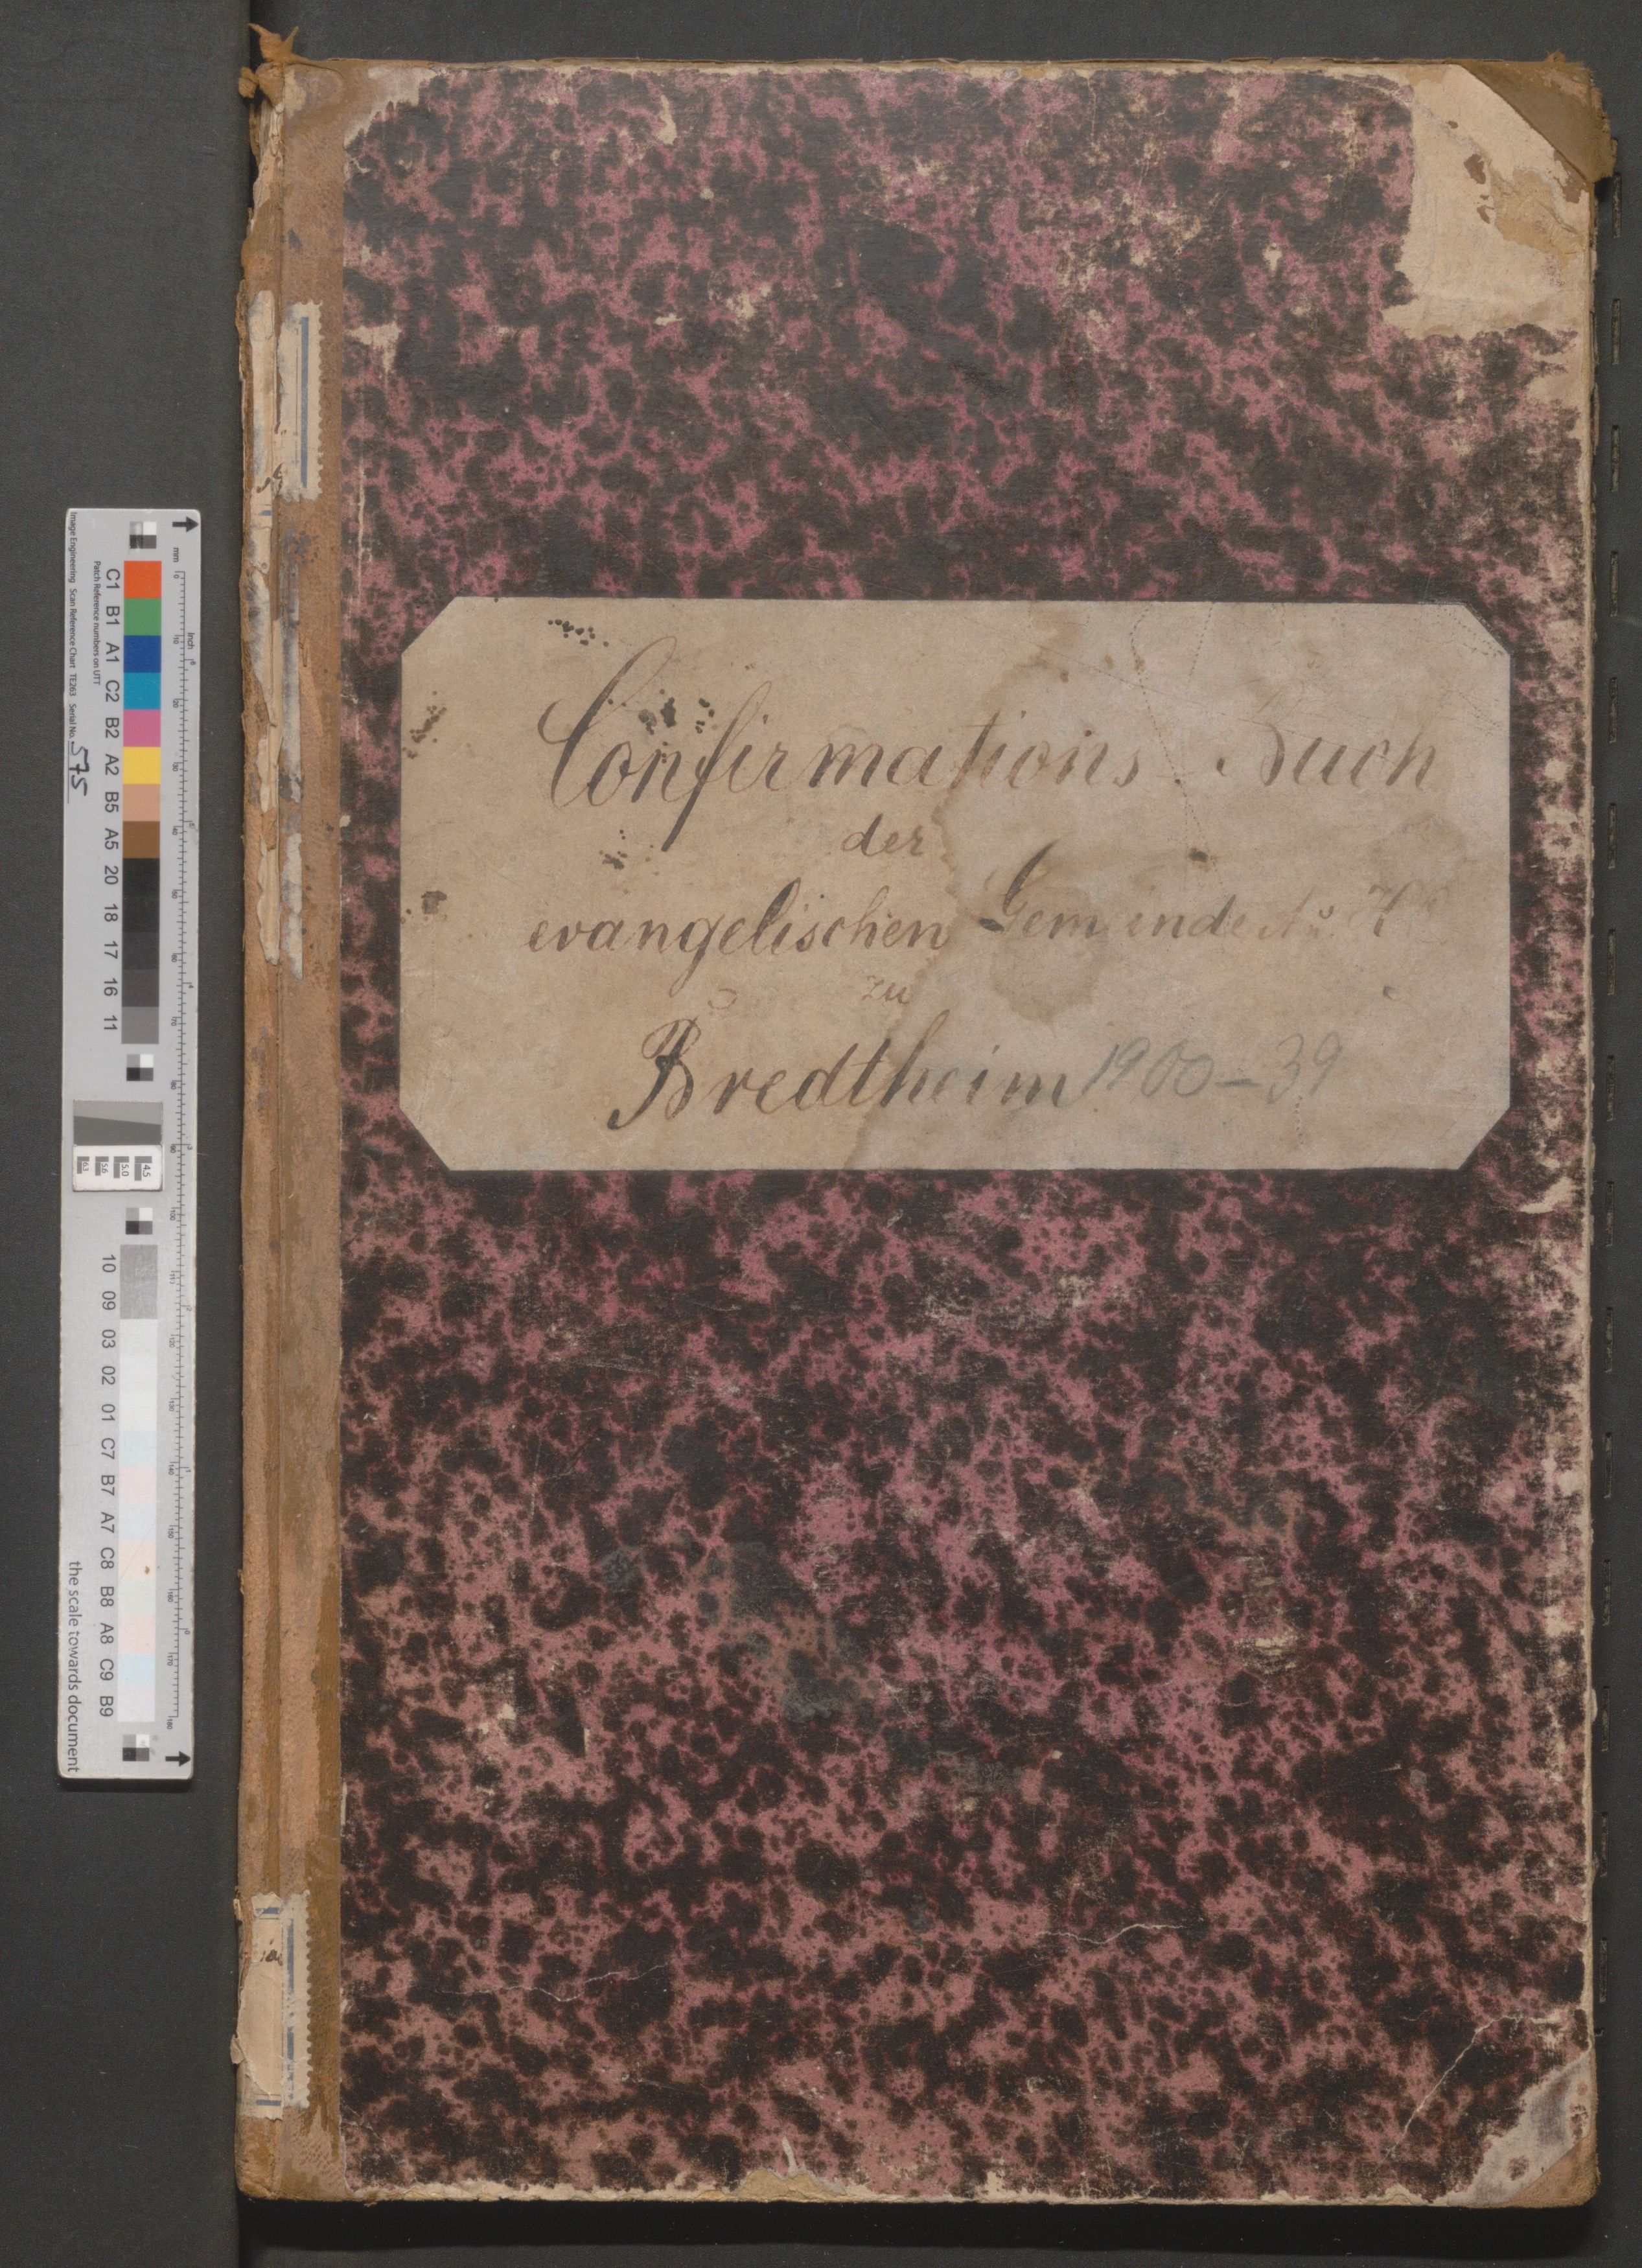 Confirmations-Buch
der
evangelischen Gemeinde A. u. H.
zu
Bredtheim 1900-39
Image Engineering Scan Reference Chart TE263 Serial No. 575
Patch Reference numbers on UTT
C1 B1 A1 C2 B2 A2 B5 A5 20 18 17 16 11
10 09 03 02 01 C7 B7 A7 C8 B8 A8 C9 B9
the scale towards document
mm
inch